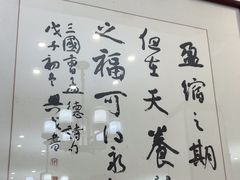 盈縮之期
但在天養
之福可得永
三國曹孟德詩句
戊子初冬